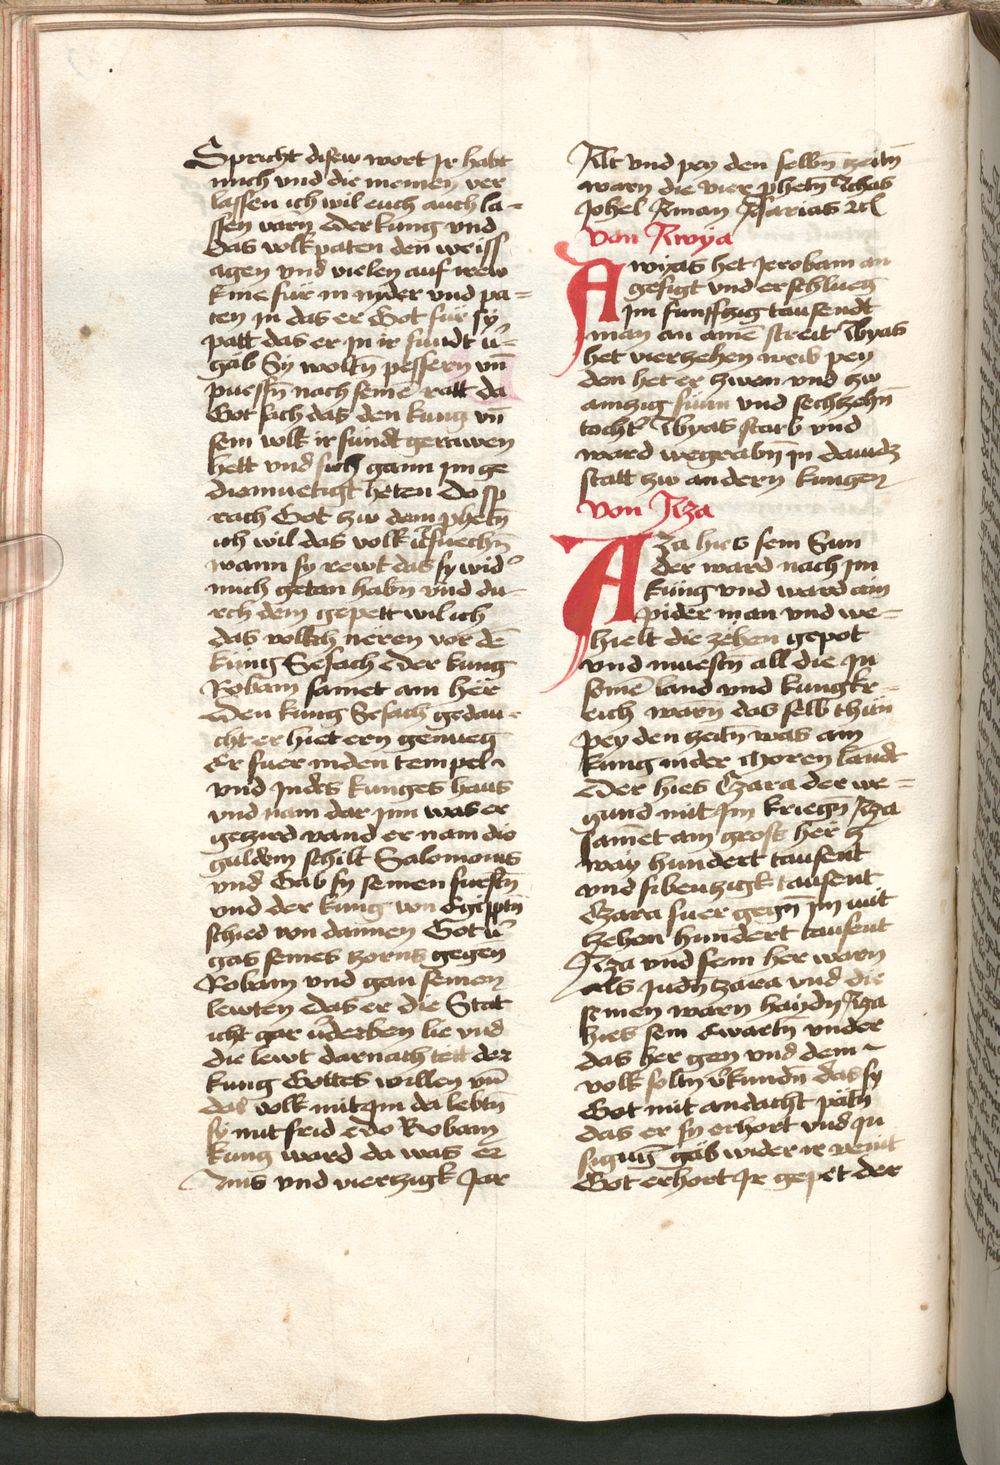 Spricht disew wort Ir habt
mich und die meinen ver
lassen ich wil euch auch la-
ssen varn Der kung und
das volk paten den weiss
agen und vielen auf irew
knie für in nyder und pa-
ten in das er Got für sy
patt das er in ir sundt v̄-
gäb Sy woltn̄ pessern vn̄
puessn̄ nach seinē ratt da
Got sach das den kung vn̄
sein volk ir sündt gerawen
hett und sich gann im ge
diemuetigt heten Do sp
rach Got zw dem phetn̄
ich wil das volk it̄ suechn̄
wann sy rewt das sy wid̄
mich getan habn̄ und du-
rch dem gepett wil ich
das volkh neren vor dē
küng Sesach Der kung
Robam samet ain hēr
Den kung Sesach gedau-
cht er hiet ern genueg
Er fuer in den tempel
und in des kunges haus
und nam dar inn was er
gezird vand er nam die
guldein schilt Salomonis
und Gab sy seinen fuestn̄
und der kung von Egiptn̄
schied von dannen Got v̄
gas seines zorns gegen
Robam und gan seinen
lewten das er die Stat
icht gar v̄derben lie und
die lewt darnach tett der
kung Gottes willen vn̄
das volk mit im da lebtn̄
sy mit frid Do Robam
kung ward da was er
Ains und viertzigk Jar
Alt und pey den selbn̄ zeitn̄
warn die vier phetn̄ Achas
Johel Aman Asarias etc
Von Awya
Awyas het Jerobam an
gesigt und erschlueg
im funffzig tausendt
man an ainē streit Abyas
het vierzehen weib pey
den het er zwen und zw
ainzig sünn und sechzehn̄
tocht̄ Abyas starb und
ward wegrabn̄ in dauidz
statt zw andern kungen
Von Aza
Aza hies sein Sun
der ward nach im
küng und ward ain
pider man und we-
hielt die zehen gepot
und muestn̄ all die in
seinē land und kungkr-
eich warn̄ das selb thün
pey den zeitn̄ was ain
kung in der Moren landt
Der hies Czara der we-
gund mit Im kriegn̄ Aza
samēt ain gross her z
way hundert tausent
und sibentzigk tausent
Czara fuer gegn̄ im mit
zehen hundert tausent
Aza und sein her warn
als Judn̄ zara und die
seinen warn haydn̄ Aza
hies sein Ewartn̄ under
das her gen und dem
volk soltn̄ v̄kundn̄ das sy
Got mit andacht pätn̄
das er sy erhort und in
sigung gäb wider ir veint
Got erhort Ir gepet der